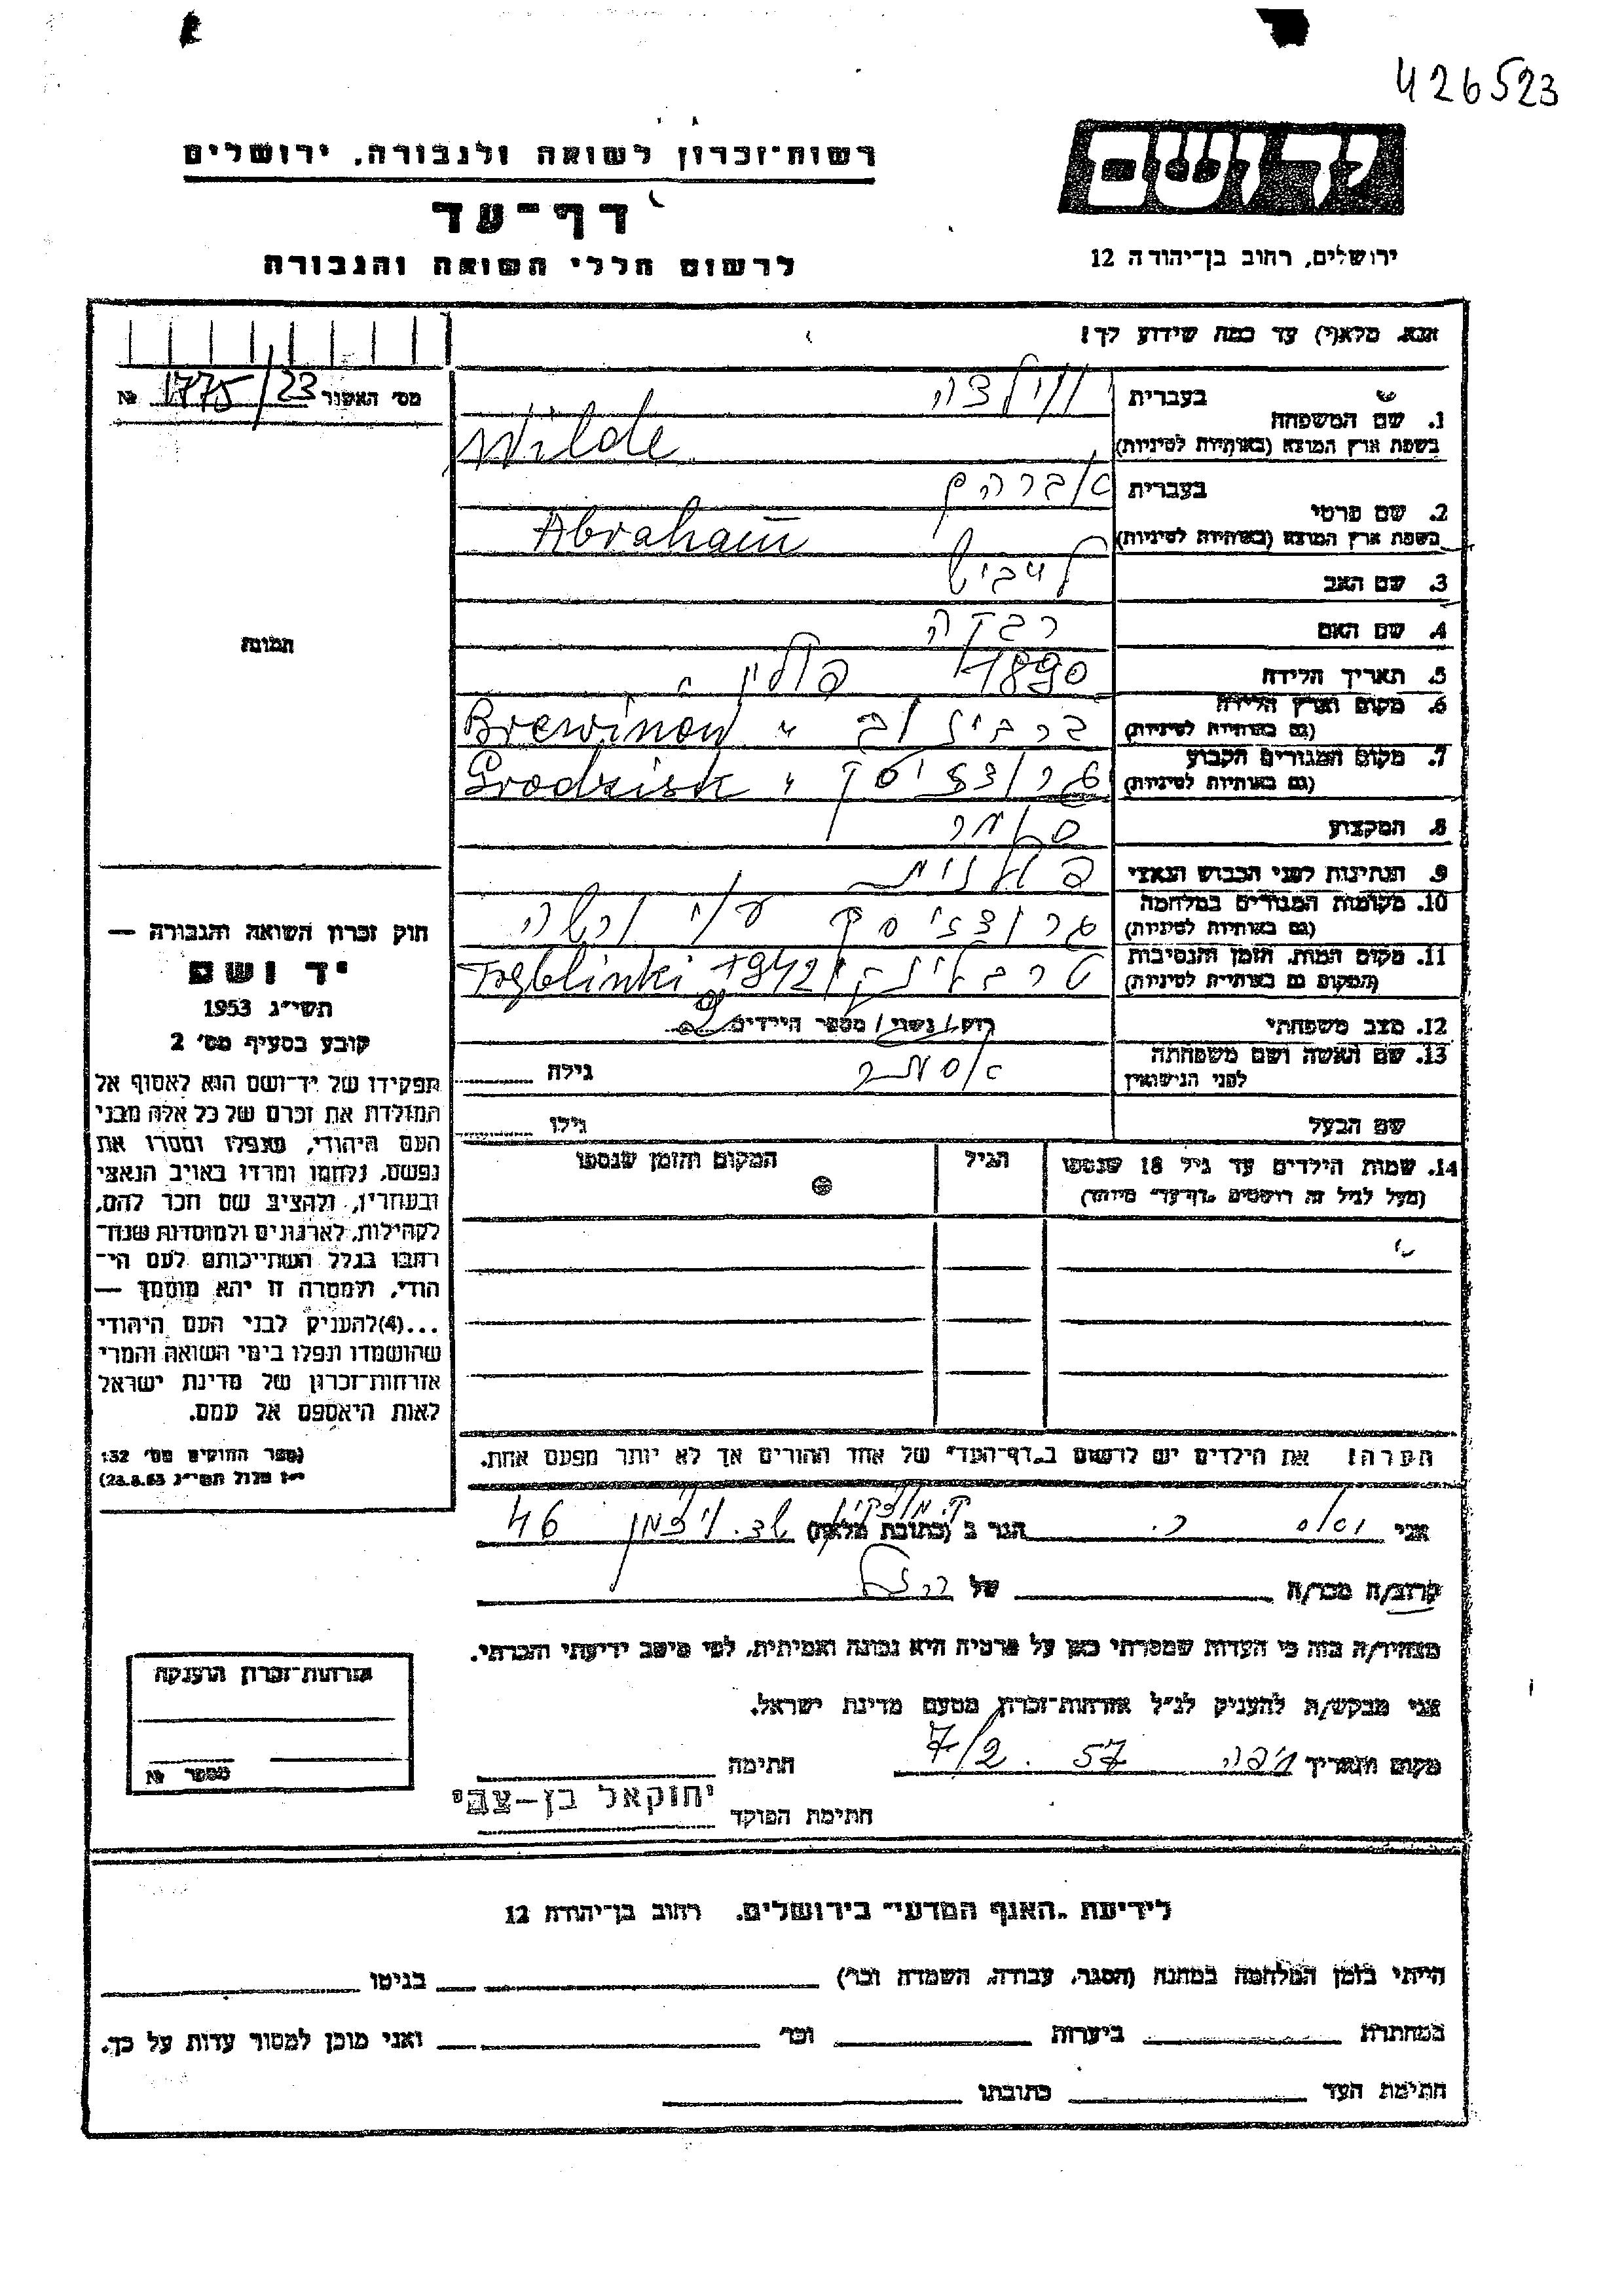 426523
יד ושם
רשות־זכרון לשואה ולגבורה, ירושלים
דף־עד
ירושלים, רחוב בן־יהודה 12
לרשום חללי השואה והגבורה
אנא, מלא(י) עד כמה שידוע לך!
מס׳ האשור 1775/23 №
1. שם המשפחה
בעברית ווילדה
בשפת ארץ המוצא (באותיות לטיניות) Wilde
2. שם פרטי
בעברית אברהם
בשפת ארץ המוצא (באותיות לטיניות) Abraham
3. שם האב לייביש
4. שם האם רבקה
תמונה
5. תאריך הלידה 1890
6. מקום וארץ הלידה
(גם באותיות לטיניות) ברבינוב " פולין Brewinow
7. מקום המגורים הקבוע
(גם באותיות לטיניות) גרודזיסק " Grodzisk
8. המקצוע סוחר
9. הנתינות לפני הכבוש הנאצי פולנית
10. מקומות המגורים במלחמה
(גם באותיות לטיניות) גרודזיסק ע"י ורשה
11. מקום המות, הזמן והנסיבות
(המקום גם באותיות לטיניות) טרבלינקי 1942 Treblinki
12. מצב משפחתי רווק/נשוי/ מספר הילדים 2
13. שם האשה ושם משפחתה
לפני הנישואין אסתר גילה
שם הבעל גילו
14. שמות הילדים עד גיל 18 שנספו
(מעל לגיל זה רושמים „דף־עד״ מיוחד)
הגיל
המקום והזמן שנספו
הערה! את הילדים יש לרשום ב„דף־העד״ של אחד ההורים אך לא יותר מפעם אחת.
חוק זכרון השואה והגבורה —
יד ושם
תשי״ג 1953
קובע בסעיף מס׳ 2
תפקידו של יד־ושם הוא לאסוף אל
המולדת את זכרם של כל אלה מבני
העם היהודי, שנפלו ומסרו את
נפשם, נלחמו ומרדו באויב הנאצי
ובעוזריו, ולהציב שם וזכר להם,
לקהילות, לארגונים ולמוסדות שנח־
רבו בגלל השתייכותם לעם הי־
הודי, ולמטרה זו יהא מוסמך —
...(4)להעניק לבני העם היהודי
שהושמדו ונפלו בימי השואה והמרי
אזרחות־זכרון של מדינת ישראל
לאות היאספם אל עמם.
(ספר החוקים מס׳ 132
י״ז אלול תשי״ג 28.8.53)
אני הגר ב (כתובת מלאה) ק. מוצקין שד. ויצמן 46
קרוב/ה מכר/ה של
מצהיר/ה בזה כי העדות שמסרתי כאן על פרטיה היא נכונה ואמיתית, לפי מיטב ידיעתי והכרתי.
אני מבקש/ת להעניק לנ״ל אזרחות־זכרון מטעם מדינת ישראל.
מקום ותאריך חיפה 7/2. 57 חתימה
חתימת הפוקד יחזקאל בן-צבי
אזרחות־זכרון הוענקה
מספר №
לידיעת „האגף המדעי״ בירושלים, רחוב בן־יהודה 12
הייתי בזמן המלחמה במחנה (הסגר, עבודה, השמדה וכו׳) בגיטו
במחתרת ביערות וכו׳ ואני מוכן למסור עדות על כך.
חתימת העד כתובתו